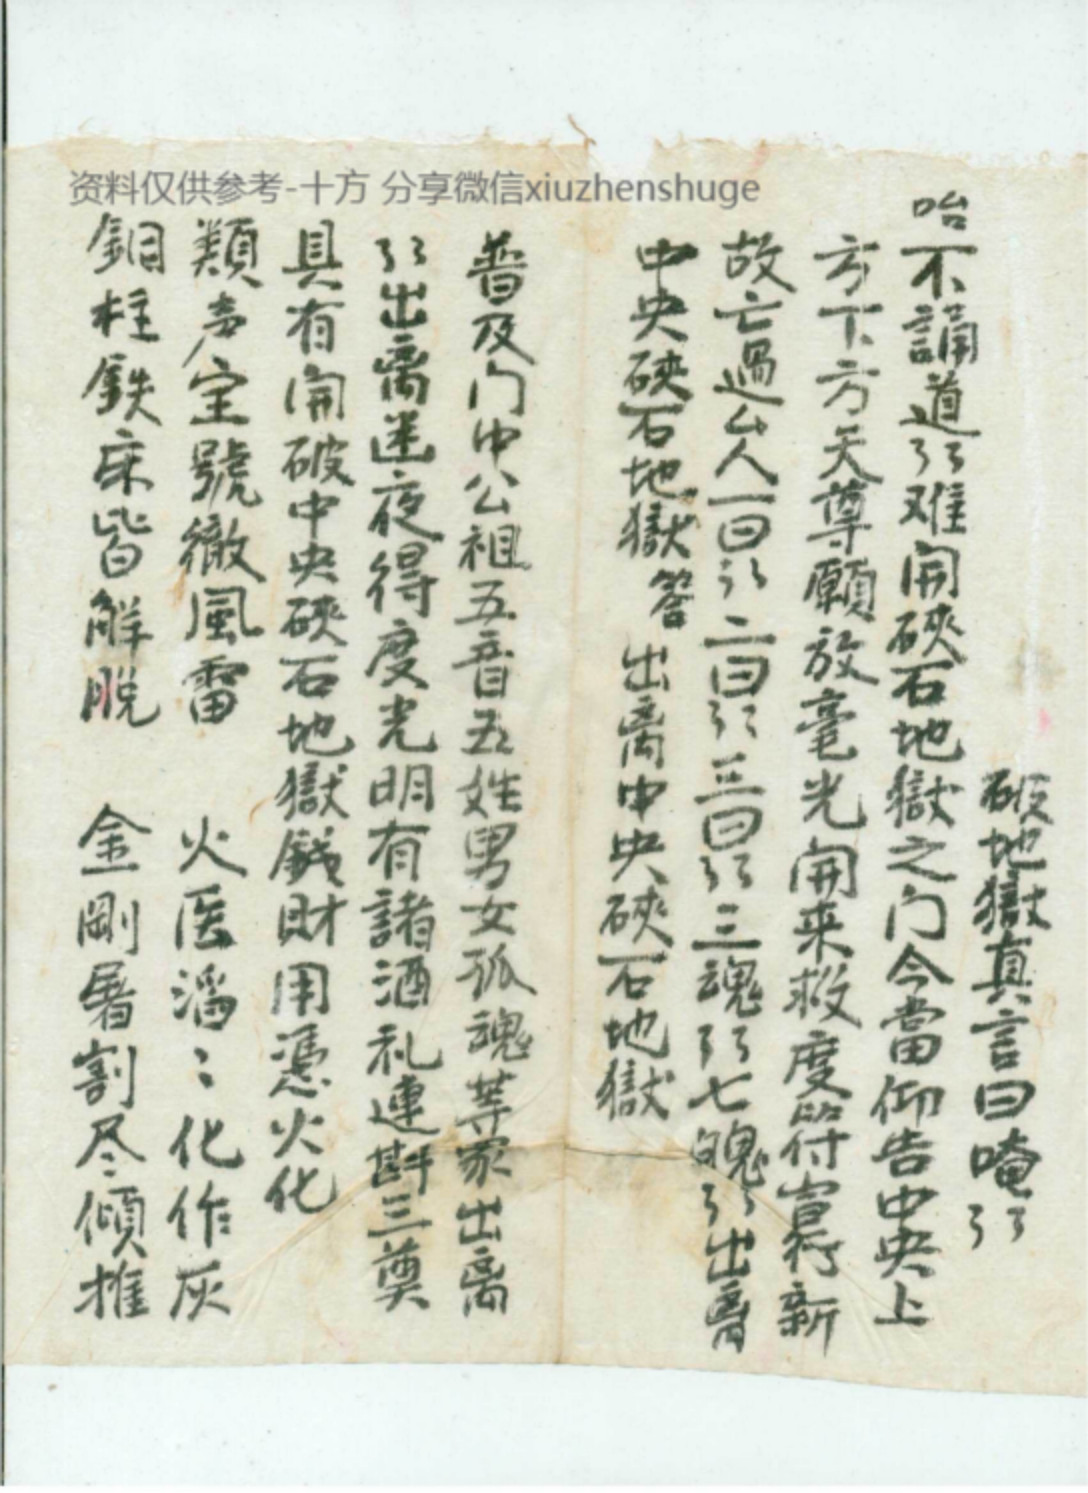 资料仅供参考-十方 分享微信xiuzhenshuge
破地獄真言曰唵
咍不誦道难開硤石地獄之门今當仰告中央上
方下方天尊願放毫光開来救度符宣行新
故亡過厶人一曰二曰三曰三魂七魄出离
中央硤石地獄 答 出离中央硤石地獄
普及门中公祖五音五姓男女孤魂等家出离
出离迷夜得度光明有諸酒礼連斟三奠
具有開破中央硤石地獄錢財用憑火化
類声宝號徹風雷 火医滔〻化作灰
銅柱鉄床皆解脱 金剛屠割尽傾摧